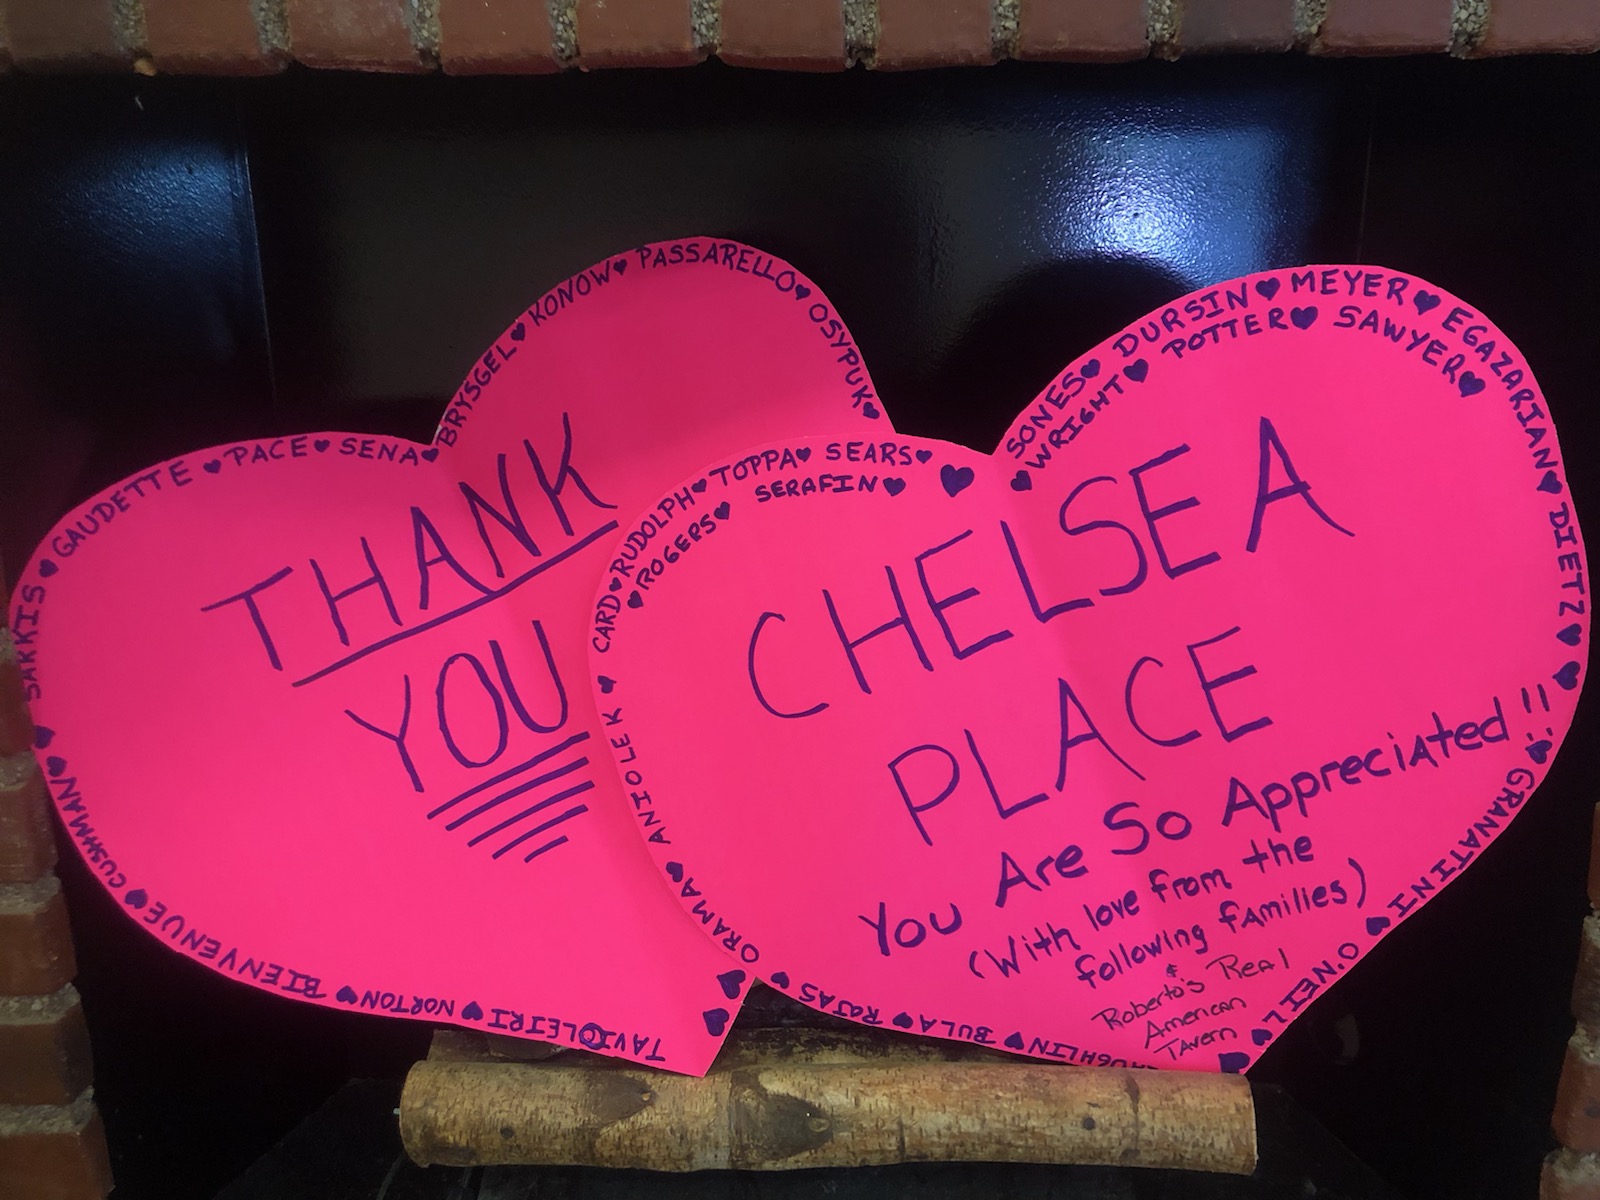 THANK
YOU
SAKKIS ♥ GAUDETTE ♥ PACE ♥ SENA ♥ BRYSGEL ♥ KONOW ♥ PASSARELLO ♥ OSYPUK ♥
♥ CUSHMAN ♥ BIENVENUE ♥ NORTON ♥ TAVIOLEIRI
CHELSEA
PLACE
You Are So Appreciated!!
(With love from the
following families)
&
Roberto's Real
American
Tavern
ORAMA ♥ ANIOLEK ♥ CARD ♥ RUDOLPH ♥ TOPPA ♥ SEARS ♥
♥ ROGERS ♥ SERAFIN ♥
SONES ♥ DURSIN ♥ MEYER ♥ EGAZARIAN ♥ DIETZ ♥ ♥
♥ WRIGHT ♥ POTTER ♥ SAWYER ♥
♥ GRANATINI ♥ O'NEIL ♥
♥ BULA ♥ ROJAS ♥